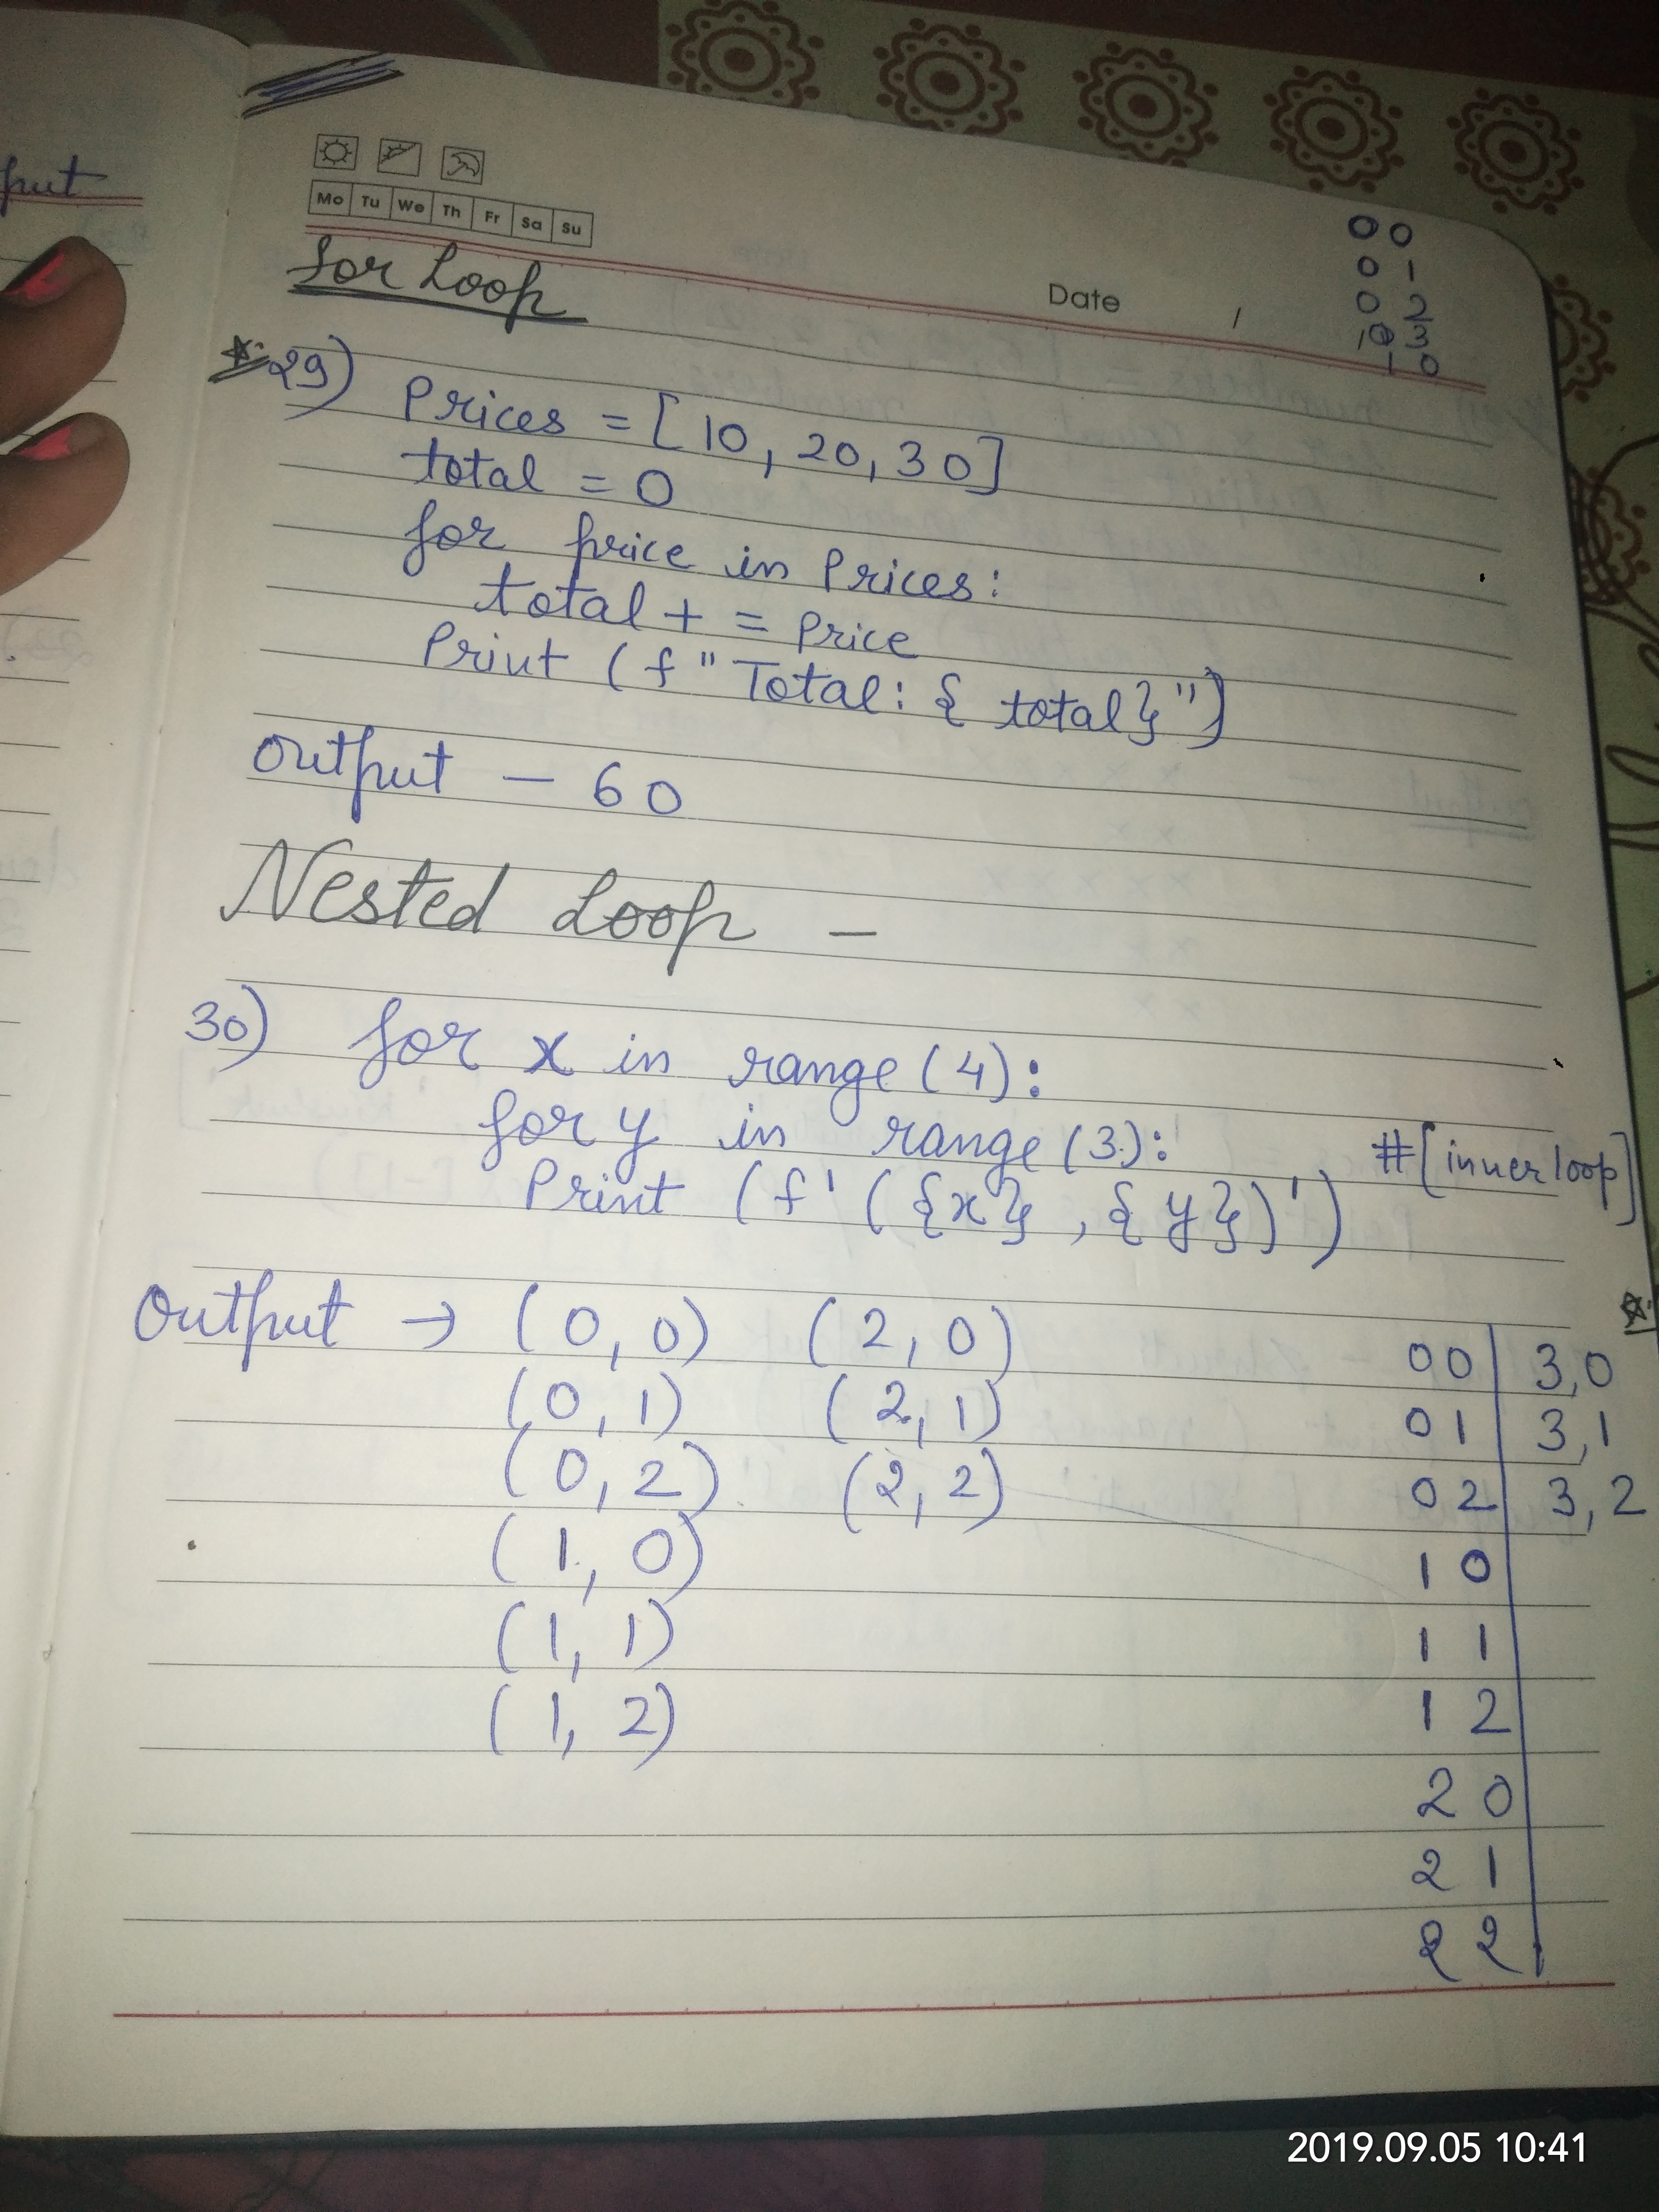 put
Mo Tu We Th Fr Sa Su
Date /
0 0
0 1
0 2
3
1 0
for Loop
29) Prices = [10, 20, 30]
total = 0
for price in Prices:
total + = Price
Print (f "Total: { total}")
Output - 60
Nested Loop -
30) for x in range (4):
for y in range (3): #[inner loop]
Print (f' ({x}, {y})')
Output → (0, 0) (2, 0)
(0, 1) (2, 1)
(0, 2) (2, 2)
(1, 0)
(1, 1)
(1, 2)
0 0 3,0
0 1 3,1
0 2 3,2
1 0
1 1
1 2
2 0
2 1
2 2
2019.09.05 10:41